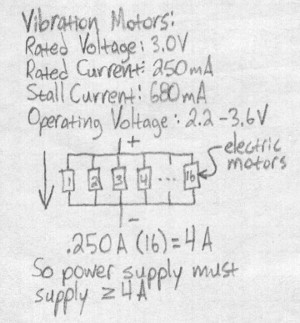 Vibration Motors:
Rated Voltage: 3.0V
Rated Current: 250mA
Stall Current: 680mA
Operating Voltage: 2.2-3.6V
+
electric
motors
1 2 3 4 ... 16
-
.250A (16) = 4A
So power supply must
supply ≥ 4A